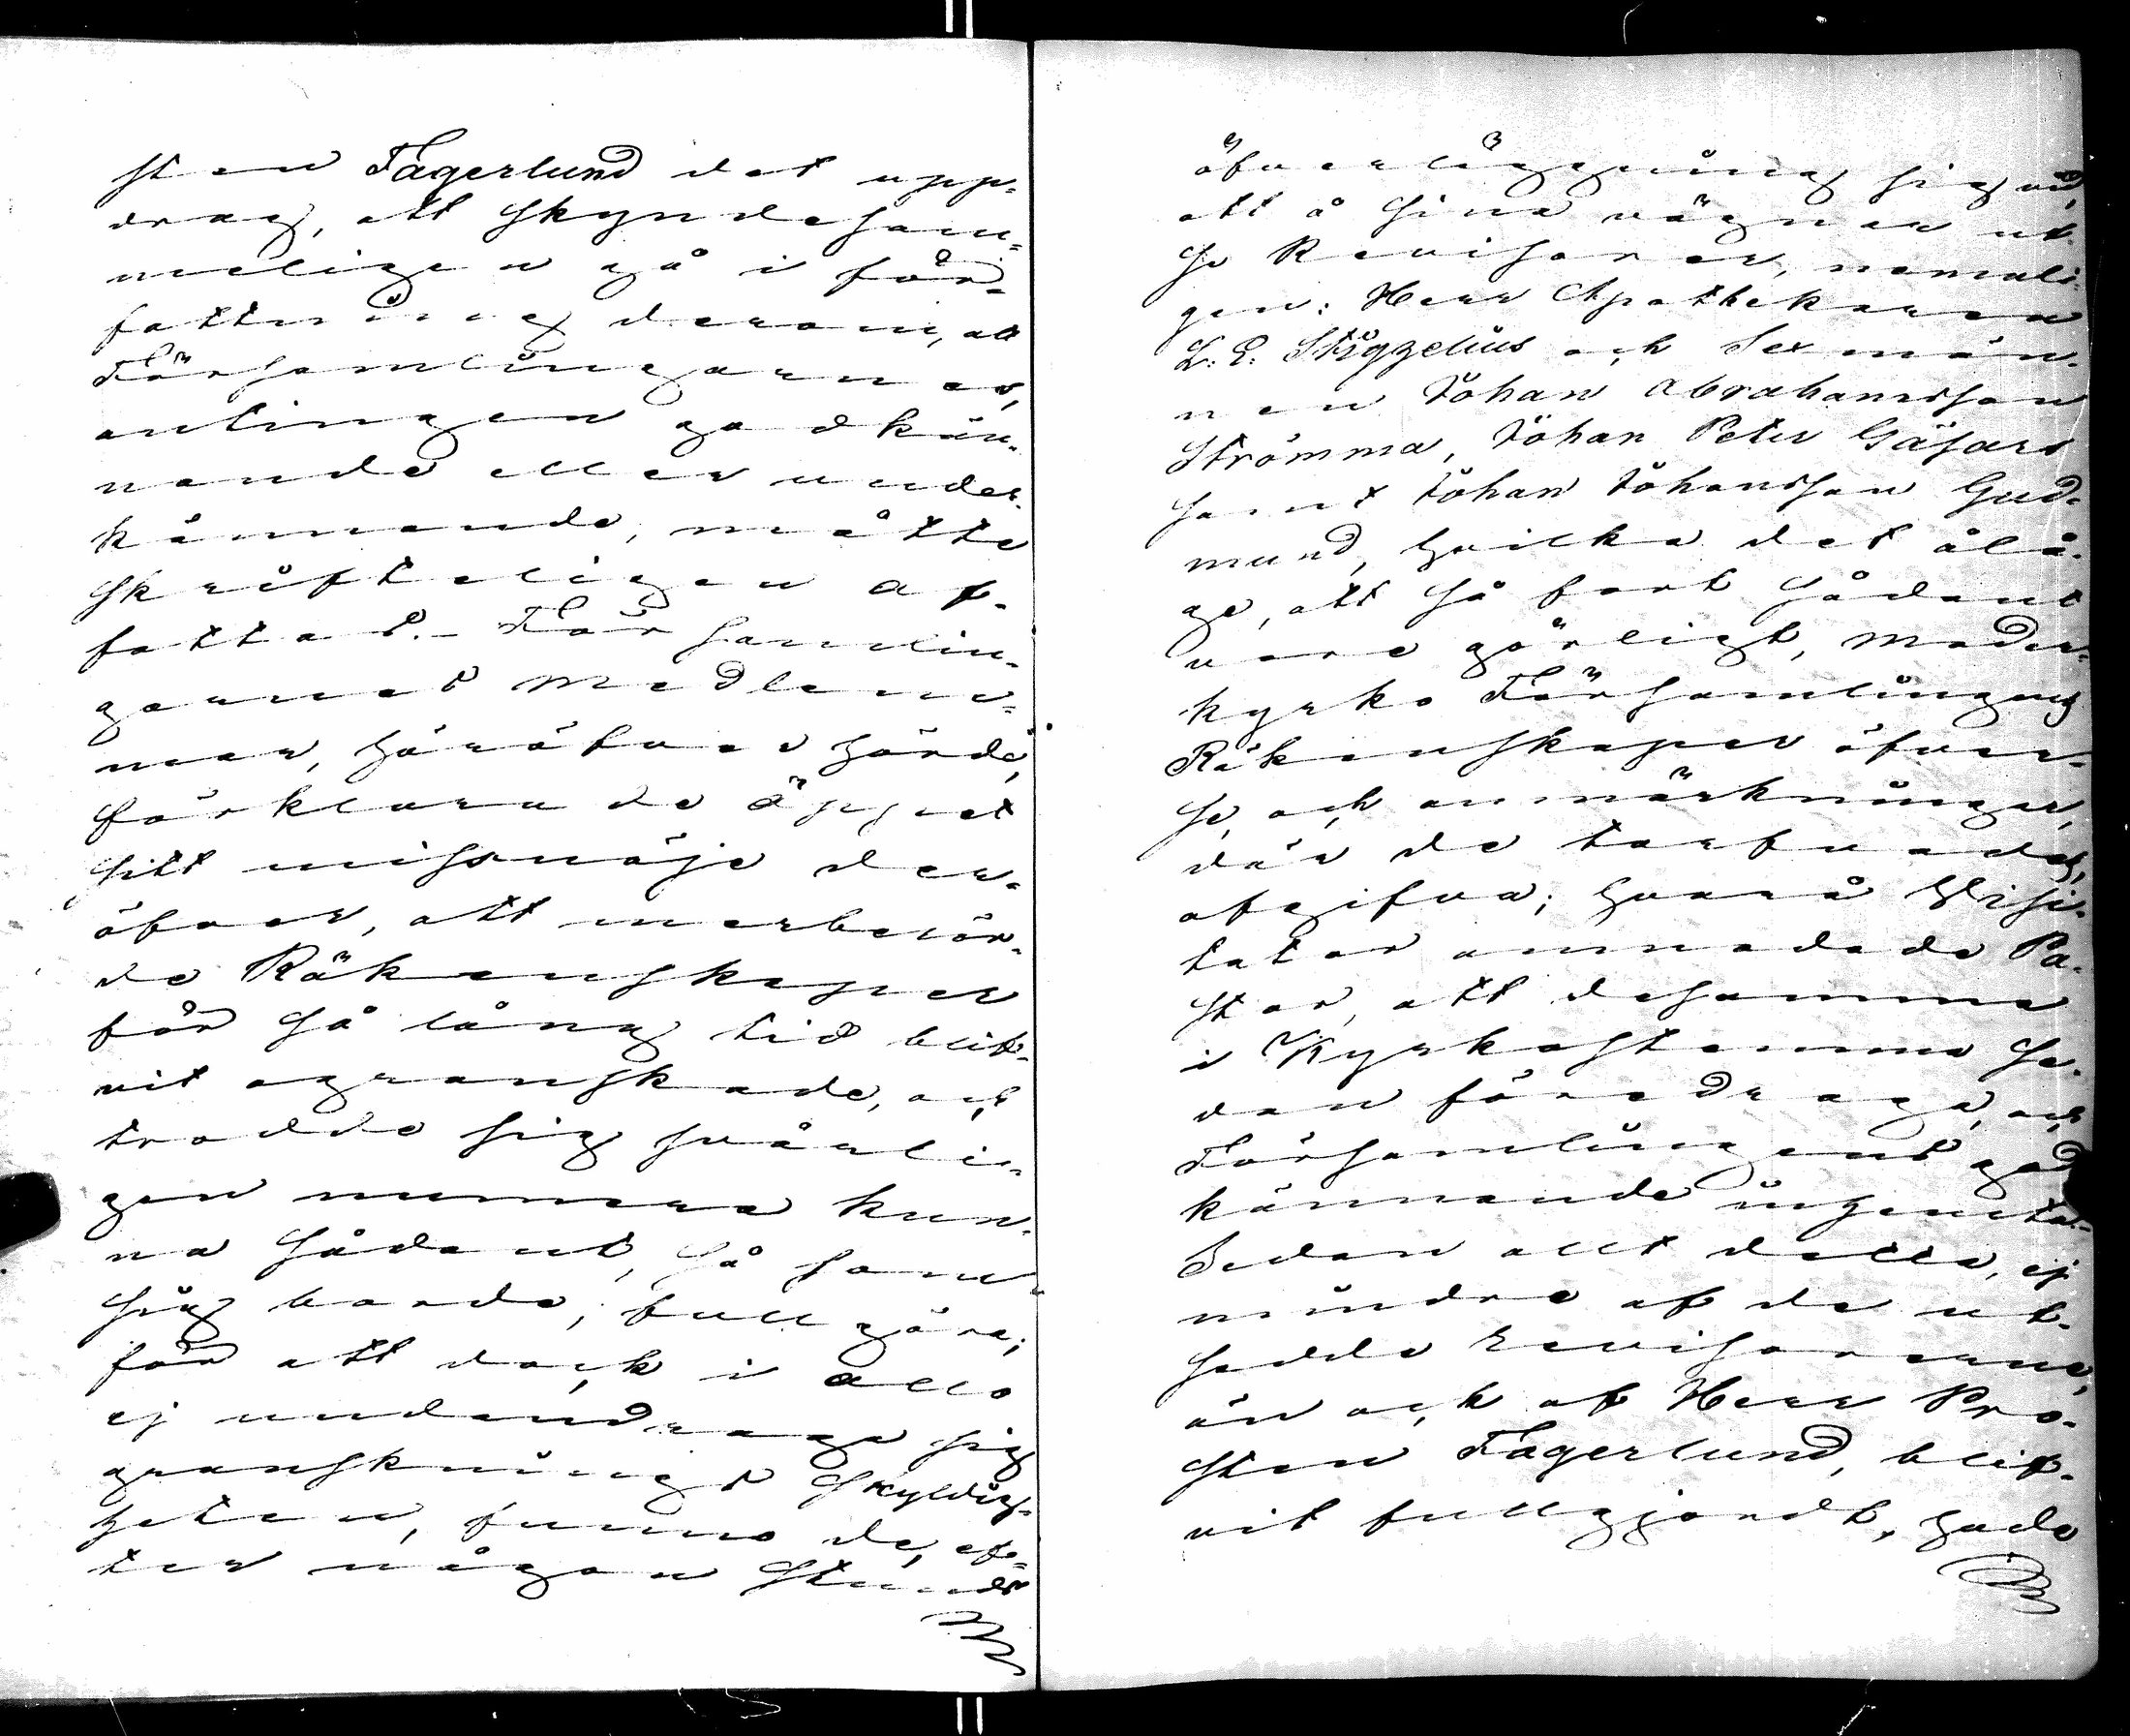 sten Fagerlund det upp-
drag, att skyndesam-
meligen gå i för-
fattning derom, att
Församlingarnes,
antingen godkän-
nande eller under-
kännande, måtte
skrifteligen af-
fattas. - Församlin-
garnes medlem-
mar, häröfver hörde,
förklarade öppet
sitt missnöje der-
öfver, att merberör-
de Räkenskaper
för så lång tid blif-
vit ogranskade, och
trodde sig svårli-
gen numera kun-
na sådant, så som
sig borde, fullgöra;
för att dock i allo
ej undandraga sig
gransknings skyldig-
heten, funno de, ef-
ter någon stunds
öfverläggning sig vid,
att å sina vägnar ut-
se Revisorer, nemli-
gen: Herr Apothekaren
L: E: Stigzelius och Sexmän-
nen Johan Abrahamsson
Strömma, Johan Peter Gäsars
samt Johan Johansson Gud-
mund, hvilka det ålå-
ge, att så fort sådant
vore görligt, moder-
kyrko Församlingens
Räkenskaper öfver-
se, och anmärkningar,
där de tarfvades,
afgifva; hvarå Visi-
tator anmodade Pa-
stor, att desamma
i Kyrkostemma se-
dan föredraga, och
Församlingens god-
kännande inhemta.
Sedan allt detta, ej
mindre af de ut-
sedde revisorerne,
än ock af Herr Pro-
sten Fagerlund, blif-
vit fullgjordt, hade